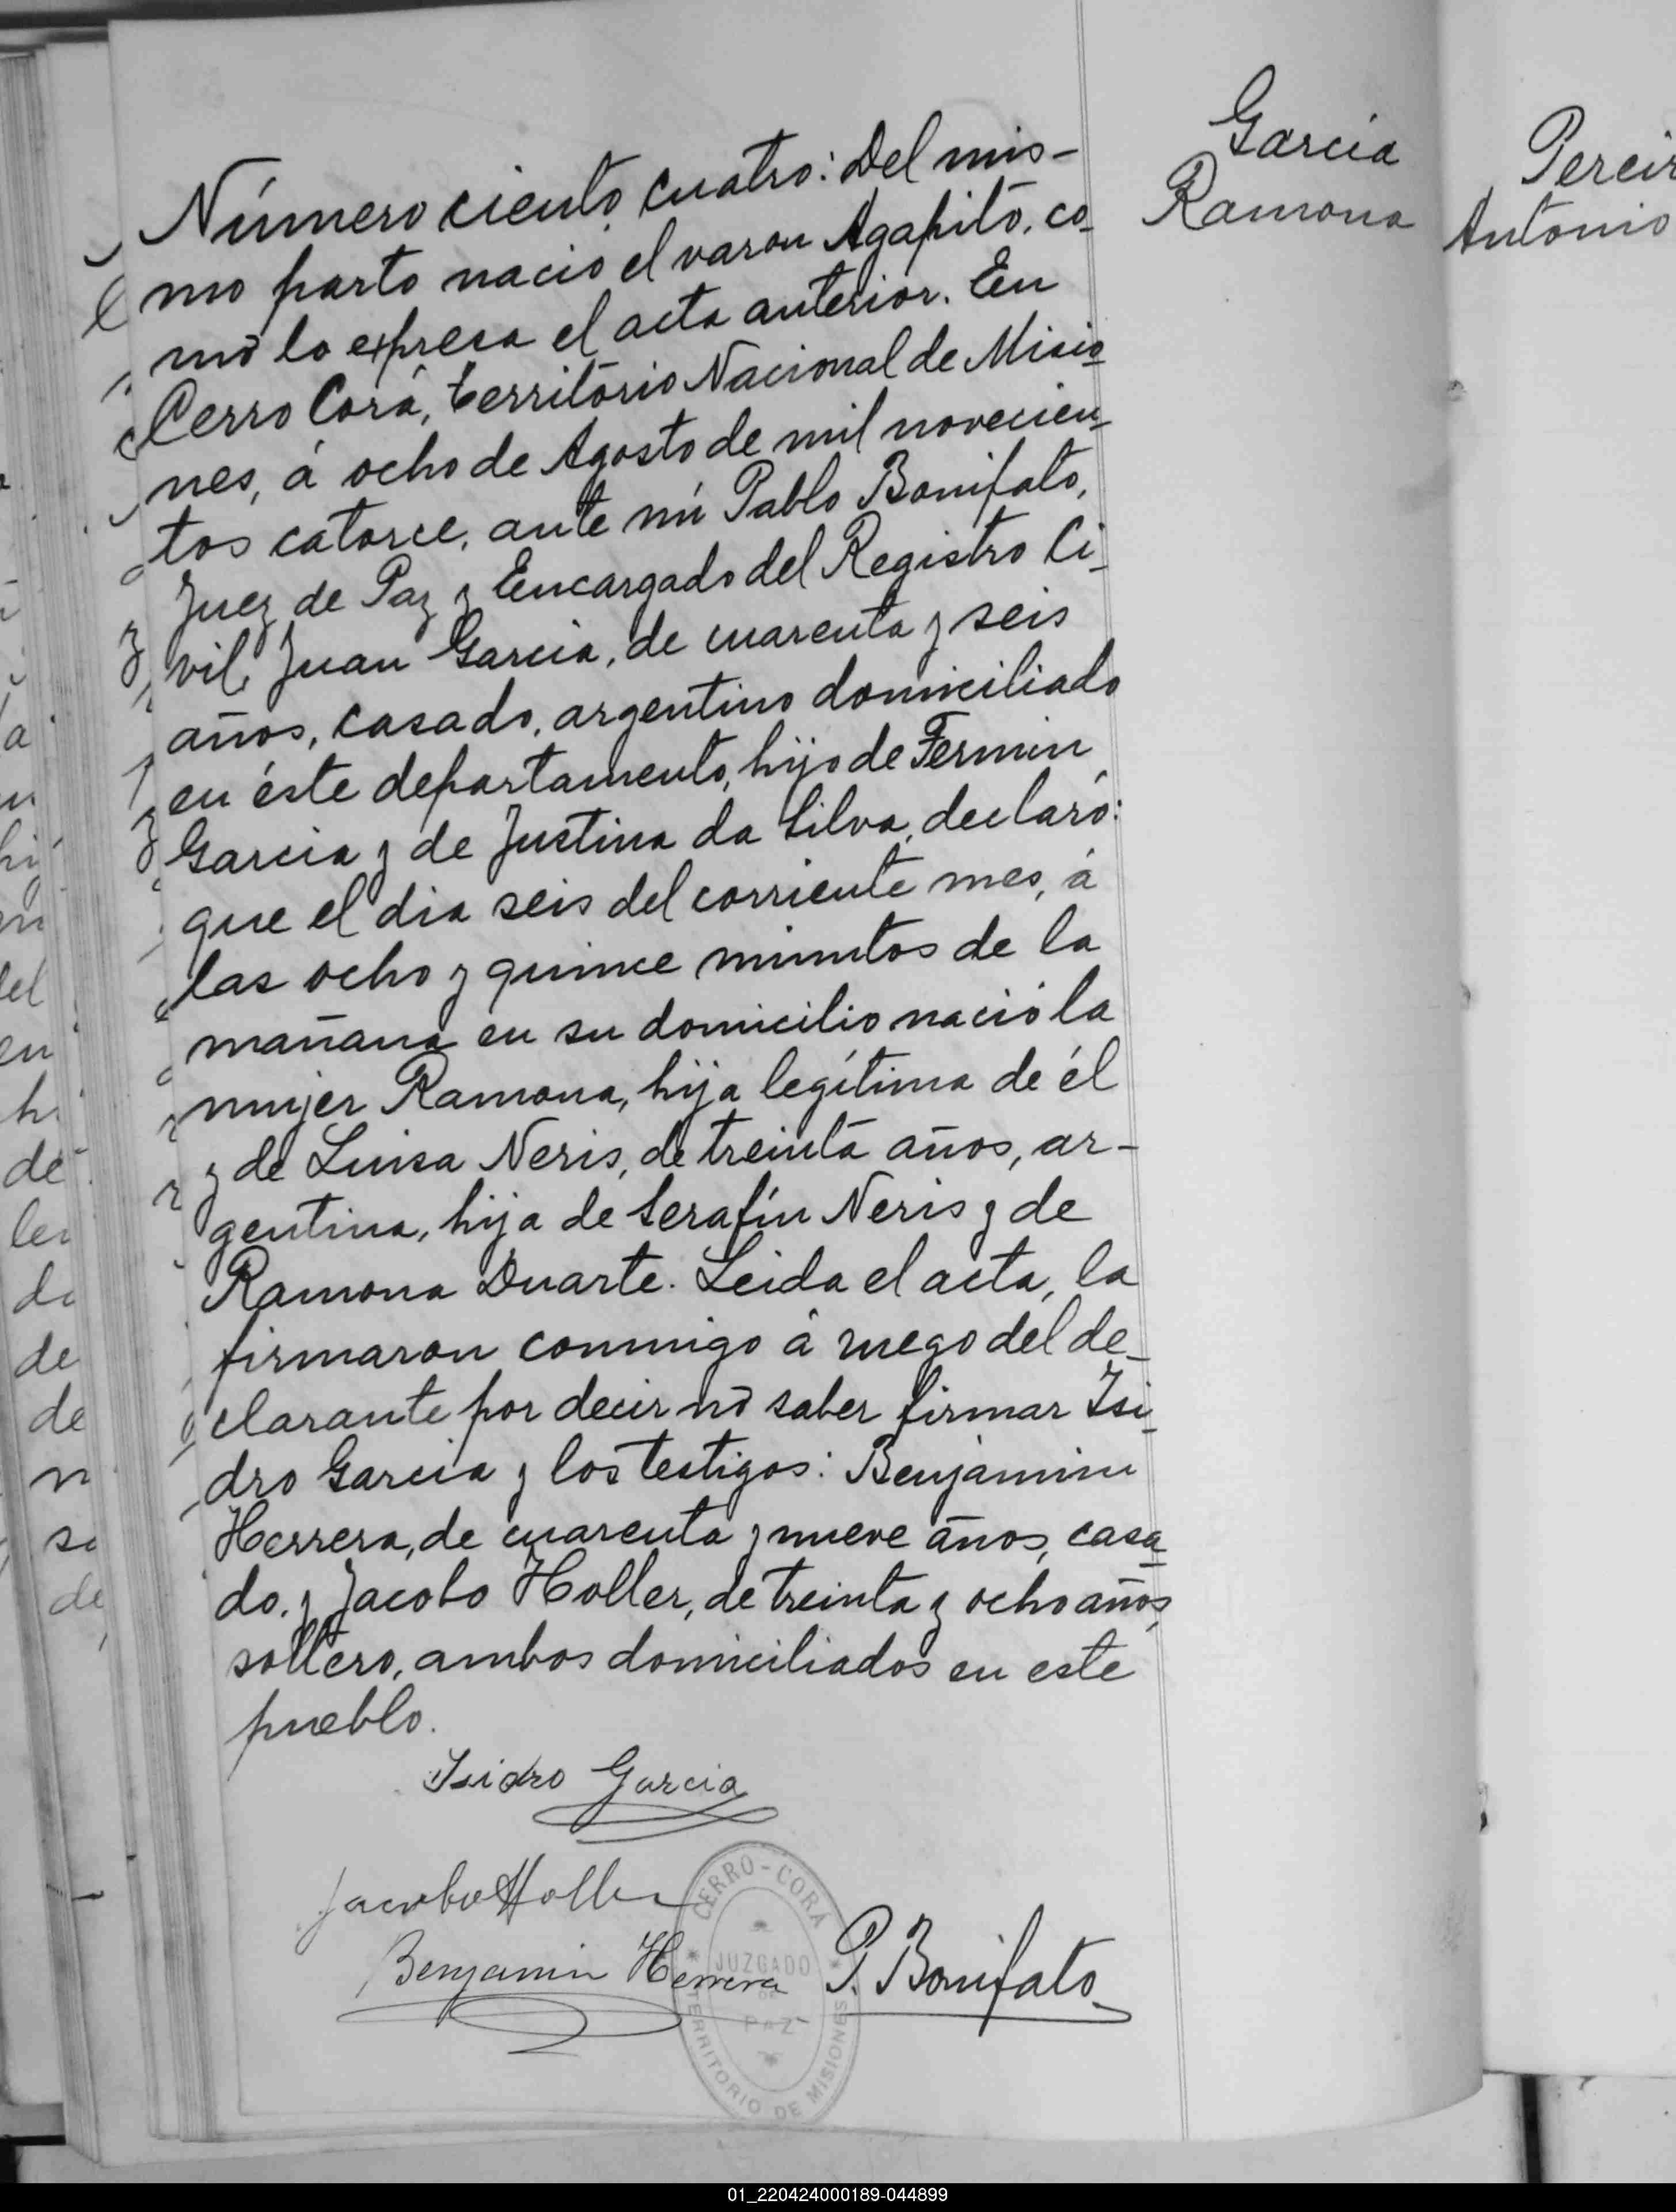 García
Ramona
Pereir
Antonio
Número ciento cuatro: Del mis-
mo parto nació el varon Agapito, co-
mo lo expresa el acta anterior. En
Cerro Corá, territorio Nacional de Misio-
nes, á ocho de Agosto de mil novecien-
tos catorce, ante mí Pablo Bonifato,
Juez de Paz y Encargado del Registro Ci-
vil, Juan Garcia, de cuarenta y seis
años, casado, argentino domiciliado
en éste departamento, hijo de Fermin
Garcia y de Justina da Silva, declaró:
que el dia seis del corriente mes, á
las ocho y quince minutos de la
mañana en su domicilio nació la
mujer Ramona, hija legítima de él
y de Luisa Neris, de treinta años, ar-
gentina, hija de Serafín Neris y de
Ramona Duarte. Leida el acta, la
firmaron conmigo á ruego del de-
clarante por decir no saber firmar Isi-
dro Garcia y los testigos: Benjamin
Herrera, de cuarenta y nueve años, casa-
do. y Jacobo Holler, de treinta y ocho años,
soltero, ambos domiciliados en este
pueblo.
Isidro Garcia
Jacobo Holler
Benjamin Herrera P. Bonifato
CERRO-CORÁ
JUZGADO
DE
PAZ
TERRITORIO DE MISIONES
01_220424000189-044899